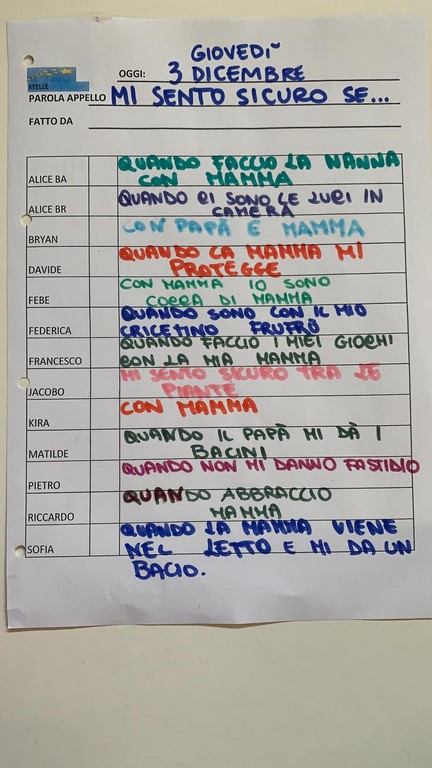 GIOVEDÌ
OGGI: 3 DICEMBRE
STELLE
PAROLA APPELLO MI SENTO SICURO SE...
FATTO DA
QUANDO FACCIO LA NANNA
ALICE BA CON MAMMA
QUANDO CI SONO LE LUCI IN
ALICE BR CAMERA
BRYAN CON PAPÀ E MAMMA
QUANDO LA MAMMA MI
DAVIDE PROTEGGE
CON MAMMA IO SONO
FEBE COCCA DI MAMMA
QUANDO SONO CON IL MIO
FEDERICA CRICETINO FRUFRÙ
QUANDO FACCIO I MIEI GIOCHI
FRANCESCO CON LA MIA MAMMA
MI SENTO SICURO TRA LE
JACOBO PIANTE
KIRA CON MAMMA
QUANDO IL PAPÀ MI DÀ I
MATILDE BACINI
PIETRO QUANDO NON MI DANNO FASTIDIO
QUANDO ABBRACCIO
RICCARDO MAMMA
QUANDO LA MAMMA VIENE
SOFIA NEL LETTO E MI DA UN
BACIO.